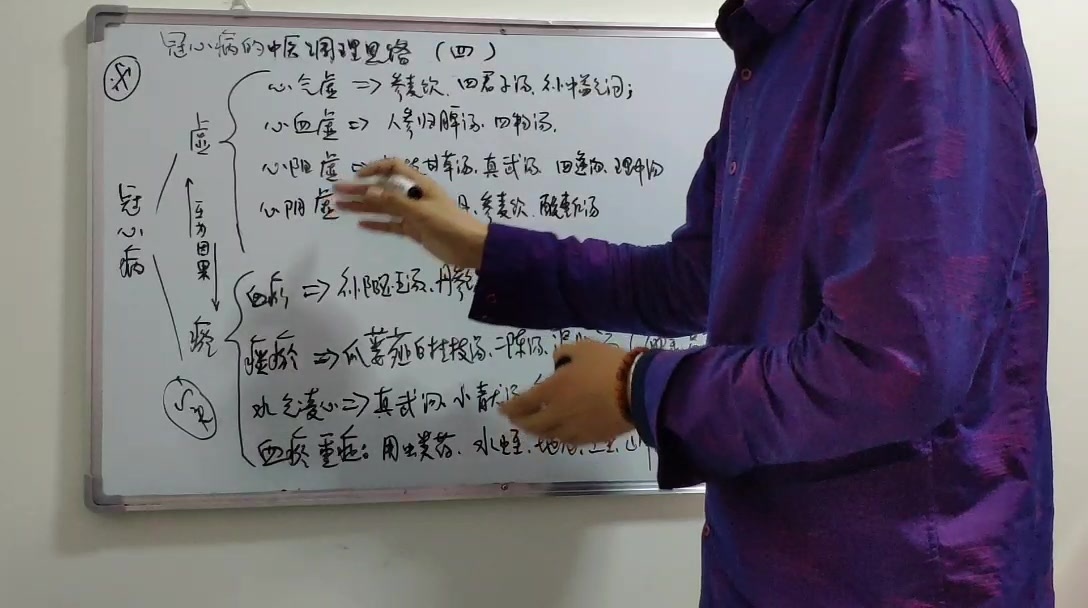 冠心病的中医调理思路（四）
心气虚 => 参麦饮、四君子汤、补中益气汤；
虚
心血虚 => 人参归脾汤、四物汤、
心阳虚 => 甘草汤、真武汤、四逆汤、理中汤
心阴虚 丹、参麦饮、酸枣仁汤
冠心病
互为因果
血瘀 => 补阳还五汤、丹参
瘀
痰瘀 => 瓜蒌薤白桂枝汤、二陈汤、温胆汤
水气凌心 => 真武汤、小青龙汤
血瘀重症：用虫类药、水蛭、地龙、土